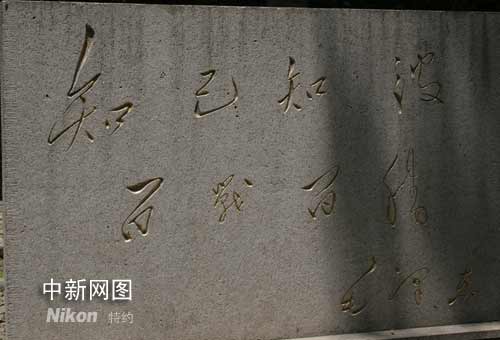 知己知彼
百戰百勝
毛泽东
中新网图
Nikon 特约